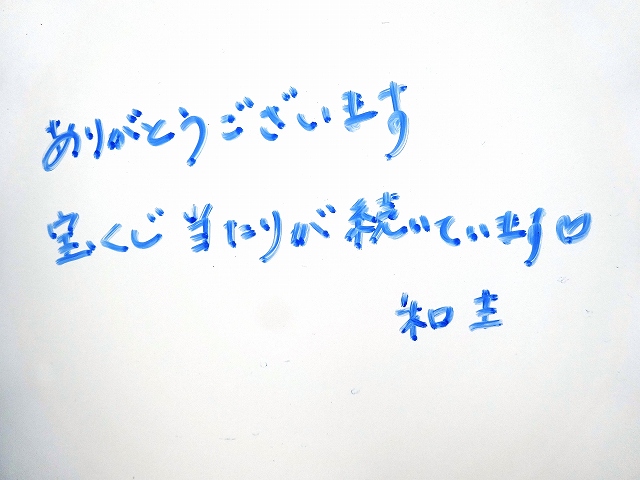 ありがとうございます
宝くじ当たりが続いています♡
和圭